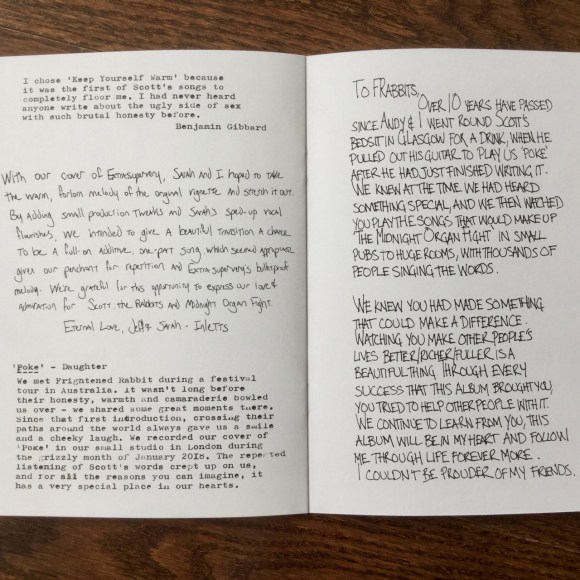 I chose 'Keep Yourself Warm' because
it was the first of Scott's songs to
completely floor me. I had never heard
anyone write about the ugly side of sex
with such brutal honesty before.
Benjamin Gibbard
With our cover of Extrasupervery, Sarah and I hoped to take
the warm, forlorn melody of the original vignette and stretch it out.
By adding small production tweaks and Sarah's sped-up vocal
flourishes, we intended to give a beautiful transition a chance
to be a full-on additive, one-part song, which seemed appropriate
given our penchant for repetition and Extrasupervery's bulletproof
melody. We're grateful for this opportunity to express our love &
admiration for Scott, the Rabbits and Midnight Organ Fight.
Eternal Love, Jeff & Sarah - Inletts
'Poke' - Daughter
We met Frightened Rabbit during a festival
tour in Australia. It wasn't long before
their honesty, warmth and camaraderie bowled
us over - we shared some great moments there.
Since that first introduction, crossing their
paths around the world always gave us a smile
and a cheeky laugh. We recorded our cover of
'Poke' in our small studio in London during
the grizzly month of January 2018. The repeated
listening of Scott's words crept up on us,
and for all the reasons you can imagine, it
has a very special place in our hearts.
TO FRABBITS,
OVER 10 YEARS HAVE PASSED
SINCE ANDY & I WENT ROUND SCOTT'S
BEDSIT IN GLASGOW FOR A DRINK, WHEN HE
PULLED OUT HIS GUITAR TO PLAY US 'POKE'
AFTER HE HAD JUST FINISHED WRITING IT.
WE KNEW AT THE TIME WE HAD HEARD
SOMETHING SPECIAL, AND WE THEN WATCHED
YOU PLAY THE SONGS THAT WOULD MAKE UP
THE 'MIDNIGHT ORGAN FIGHT' IN SMALL
PUBS TO HUGE ROOMS, WITH THOUSANDS OF
PEOPLE SINGING THE WORDS.
WE KNEW YOU HAD MADE SOMETHING
THAT COULD MAKE A DIFFERENCE.
WATCHING YOU MAKE OTHER PEOPLE'S
LIVES BETTER/RICHER/FULLER IS A
BEAUTIFUL THING. THROUGH EVERY
SUCCESS THAT THIS ALBUM BROUGHT YOU,
YOU TRIED TO HELP OTHER PEOPLE WITH IT.
WE CONTINUE TO LEARN FROM YOU, THIS
ALBUM WILL BE IN MY HEART AND FOLLOW
ME THROUGH LIFE FOREVER MORE.
I COULDN'T BE PROUDER OF MY FRIENDS.